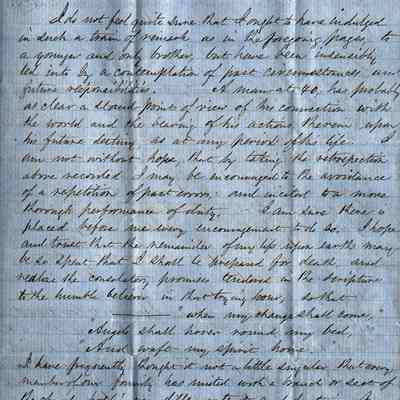 I do not feel quite sure that I ought to have indulged
in such a train of remark as in the foregoing pages to
a younger and only brother, but have been insensibly
led into by a contemplation of past circumstances and
future responsibilities. A man at 40, has probably
as clear a stand point of view of his connection with
the world and the bearing of his actions therein upon
his future destiny as at any period of his life. I
am not without hope, that by taking the retrospection
above recorded I may be encouraged to the avoidance
of a repetition of past errors and incited to a more
thorough performance of duty. I am sure there is
placed before me every encouragement to do so. I hope
and trust that the remainder of my life upon earth may
be so spent that I shall be prepared for death and
realize the consolatory promises tendered in the scripture
to the humble believer in that trying hour, so that
"when my change shall come,
"Angels shall hover round my bed,
"And waft my spirit home."
I have frequently thought it not a little singular that every
member of our family has united with a branch or sect of